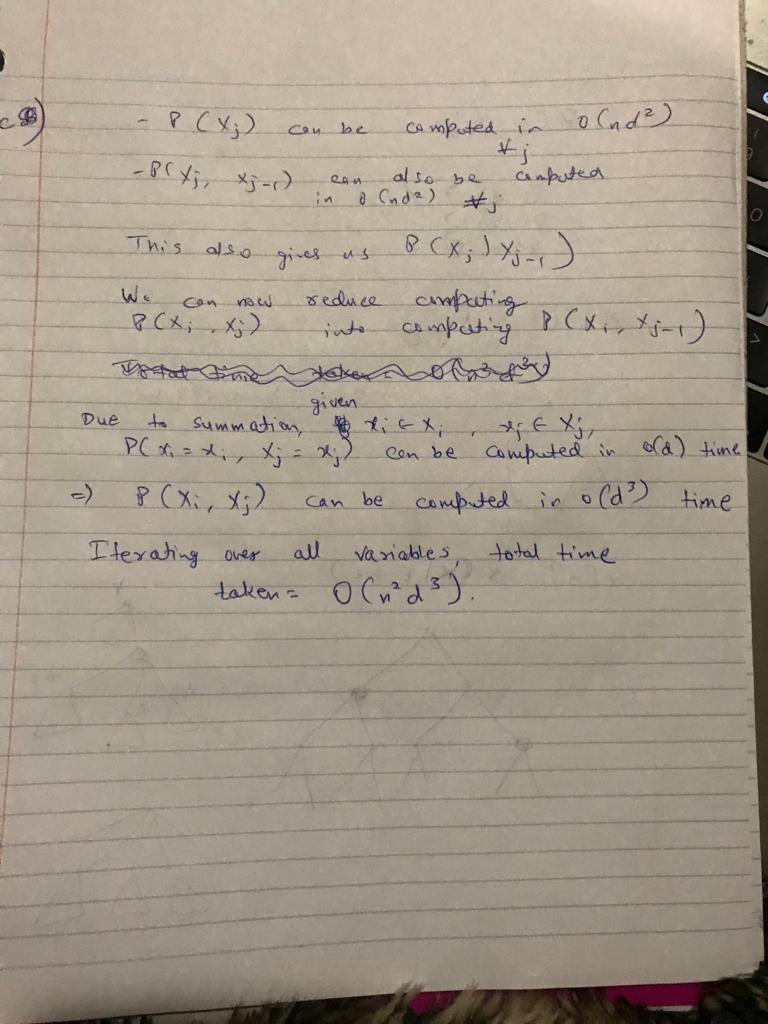 c)
- P(Xj) can be computed in O(nd²)
∀j
- P(Xj, Xj-1) can also be computed
in O(nd²) ∀j
This also gives us P(Xj | Xj-1)
We can now reduce computing
P(Xi, Xj) into computing P(Xi, Xj-1)
Total time taken = O(n³d³)
given
Due to summation, xi ∈ Xi, xj ∈ Xj,
P(Xi = xi, Xj = xj) can be computed in O(d) time
=> P(Xi, Xj) can be computed in O(d³) time
Iterating over all variables, total time
taken = O(n²d³).